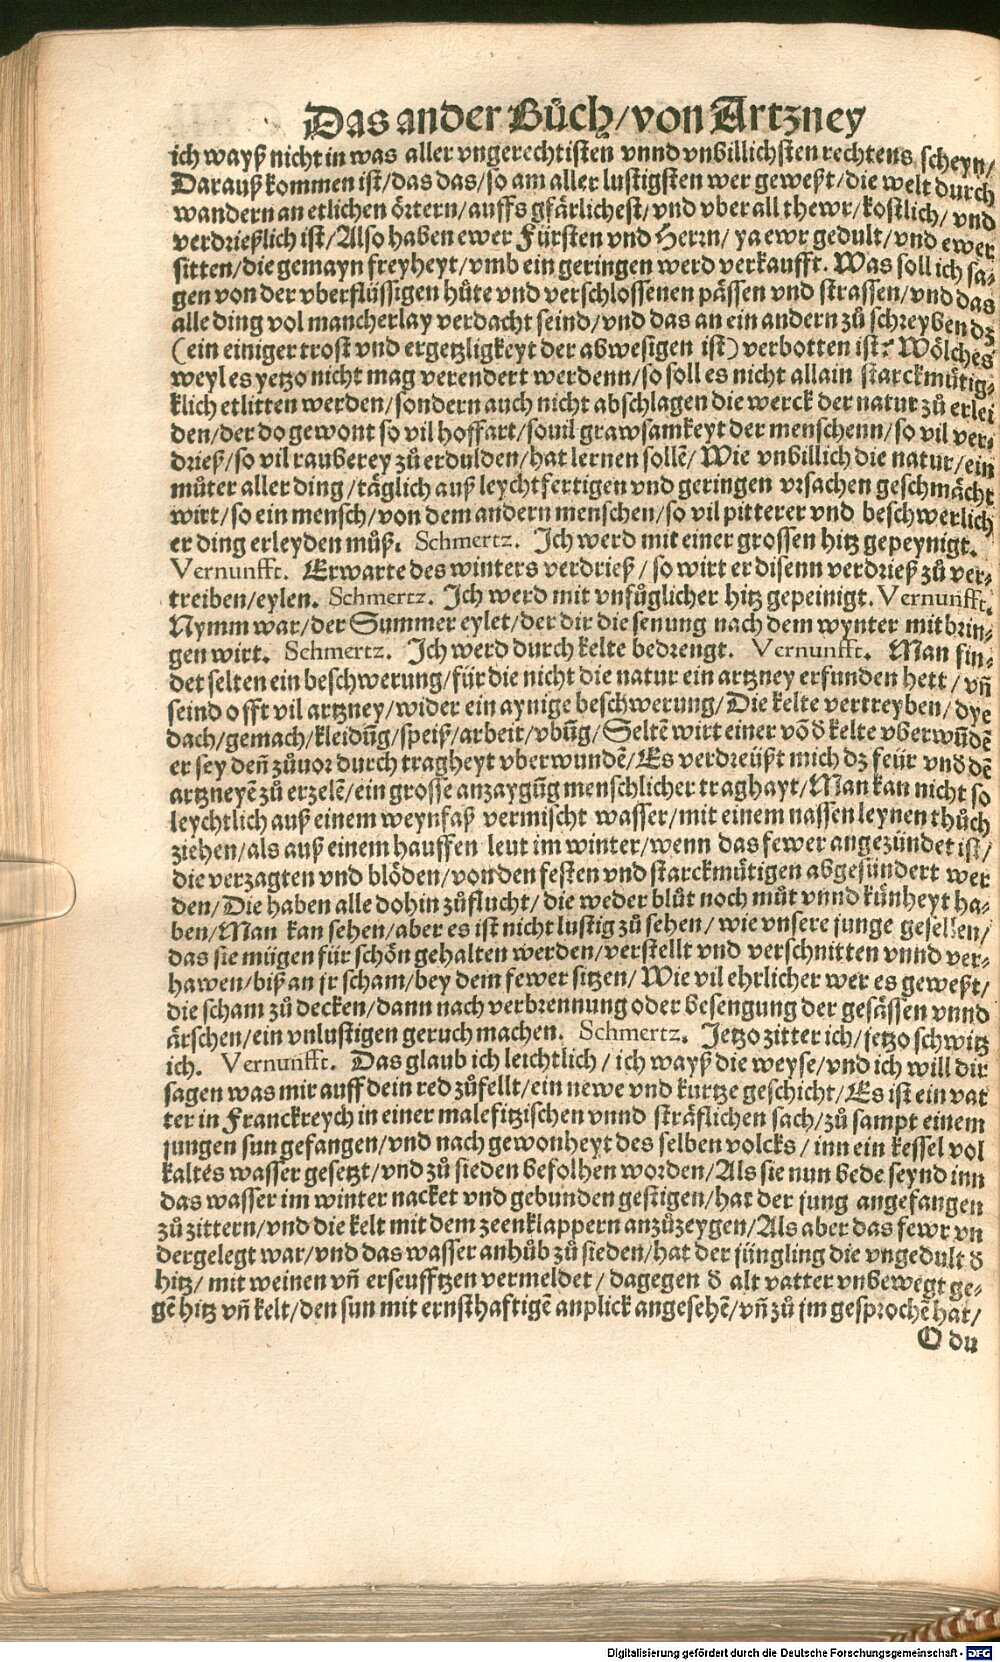 Das ander Bůch/von Artzney
ich wayß nicht in was aller vngerechtisten vnnd vnbillichsten rechtens scheyn/
Darauß kommen ist/das das/so am aller lustigsten wer geweßt/die welt durch
wandern an etlichen örtern/auffs gfärlichest/vnd vber all thewr/kostlich/vnd
verdrießlich ist/Also haben ewer Fürsten vnd Herrn/ya ewr gedult/vnd ewer
sitten/die gemayn freyheyt/vmb ein geringen werd verkaufft. Was soll ich sa-
gen von der vberflüssigen hůte vnd verschlossenen pässen vnd strassen/vnd das
alle ding vol mancherlay verdacht seind/vnd das an ein andern zů schreyben dz
(ein einiger trost vnd ergetzligkeyt der abwesigen ist) verbotten ist? Wölches
weyl es yetzo nicht mag verendert werdenn/so soll es nicht allain starckmütig-
klich etlitten werden/sondern auch nicht abschlagen die werck der natur zů erlei
den/der do gewont so vil hoffart/souil grawsamkeyt der menschenn/so vil ver-
drieß/so vil rauberey zů erdulden/hat lernen sollē/Wie vnbillich die natur/ein
můter aller ding/täglich auß leychtfertigen vnd geringen vrsachen geschmächt
wirt/so ein mensch/von dem andern menschen/so vil pitterer vnd beschwerlich
er ding erleyden můß. Schmertz. Ich werd mit einer grossen hitz gepeynigt.
Vernunfft. Erwarte des winters verdrieß/so wirt er disenn verdrieß zů ver-
treiben/eylen. Schmertz. Ich werd mit vnfůglicher hitz gepeinigt. Vernunfft.
Nymm war/der Summer eylet/der dir die senung nach dem wynter mit brin-
gen wirt. Schmertz. Ich werd durch kelte bedrengt. Vernunfft. Man fin-
det selten ein beschwerung/für die nicht die natur ein artzney erfunden hett/vñ
seind offt vil artzney/wider ein aynige beschwerung/Die kelte vertreyben/dye
dach/gemach/kleidūg/speiß/arbeit/vbūg/Seltē wirt einer vō d̄ kelte vberwūdē
er sey deñ zůuor durch tragheyt vberwundē/Es verdreüßt mich dz feür vnd dē
artzneyē zů erzelē/ein grosse anzaygūg menschlicher traghayt/Man kan nicht so
leychtlich auß einem weynfaß vermischt wasser/mit einem nassen leynen thůch
ziehen/als auß einem hauffen leut im winter/wenn das fewer angezündet ist/
die verzagten vnd blöden/von den festen vnd starckmütigen abgesündert wer
den/Die haben alle dohin zůflucht/die weder blůt noch můt vnnd künheyt ha-
ben/Man kan sehen/aber es ist nicht lustig zů sehen/wie vnsere junge gesellen/
das sie mügen für schön gehalten werden/verstellt vnd verschnitten vnnd ver-
hawen/biß an jr scham/bey dem fewer sitzen/Wie vil ehrlicher wer es geweßt/
die scham zů decken/dann nach verbrennung oder besengung der gesässen vnnd
ärschen/ein vnlustigen geruch machen. Schmertz. Jetzo zitter ich/jetzo schwitz
ich. Vernunfft. Das glaub ich leichtlich/ich wayß die weyse/vnd ich will dir
sagen was mir auff dein red zůfellt/ein newe vnd kurtze geschicht/Es ist ein vat
ter in Franckreych in einer malefitzischen vnnd sträflichen sach/zů sampt einem
jungen sun gefangen/vnd nach gewonheyt des selben volcks/inn ein kessel vol
kaltes wasser gesetzt/vnd zů sieden befolhen worden/Als sie nun bede seynd inn
das wasser im winter nacket vnd gebunden gestigen/hat der jung angefangen
zů zittern/vnd die kelt mit dem zeenklappern anzůzeygen/Als aber das fewr vn
dergelegt war/vnd das wasser anhůb zů sieden/hat der jüngling die vngedult d̄
hitz/mit weinen vñ erseufftzen vermeldet/dagegen d̄ alt vatter vnbewegt ge-
gē hitz vñ kelt/den sun mit ernsthaftigē anplick angesehē/vñ zů jm gesprochē hat/
O du
Digitalisierung gefördert durch die Deutsche Forschungsgemeinschaft - DFG